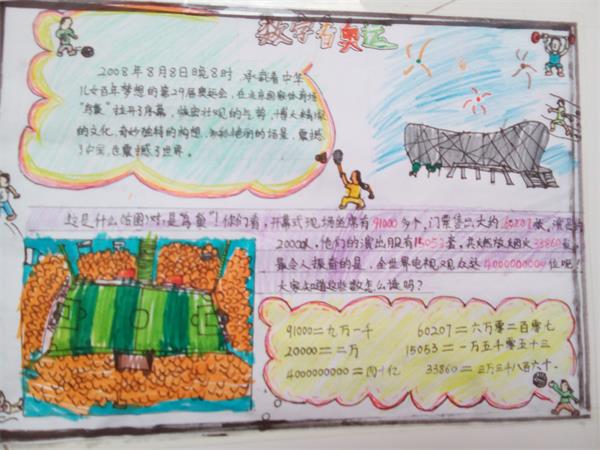 数字与奥运
2008年8月8日晚8时 承载着中华
儿女百年梦想的第29届奥运会,在北京国家体育场
"鸟巢"拉开了序幕,恢宏壮观的气势,博大精深
的文化,奇妙独特的构想,绚丽的场景,震撼
了中国,也震撼了世界。
这是什么(哈图)对,是"鸟巢"!你们看,开幕式现场坐席有91000多个,门票售出大约60207张,演员
2000人,他们的演出服有15053套,共燃放烟火33860
最令人振奋的是,全世界电视观众达4000000000位呢!
大家知道这些数怎么读吗?
91000=九万一千 60207=六万零二百零七
20000=二万 15053=一万五千零五十三
4000000000=四十亿 33860=三万三千八百六十.